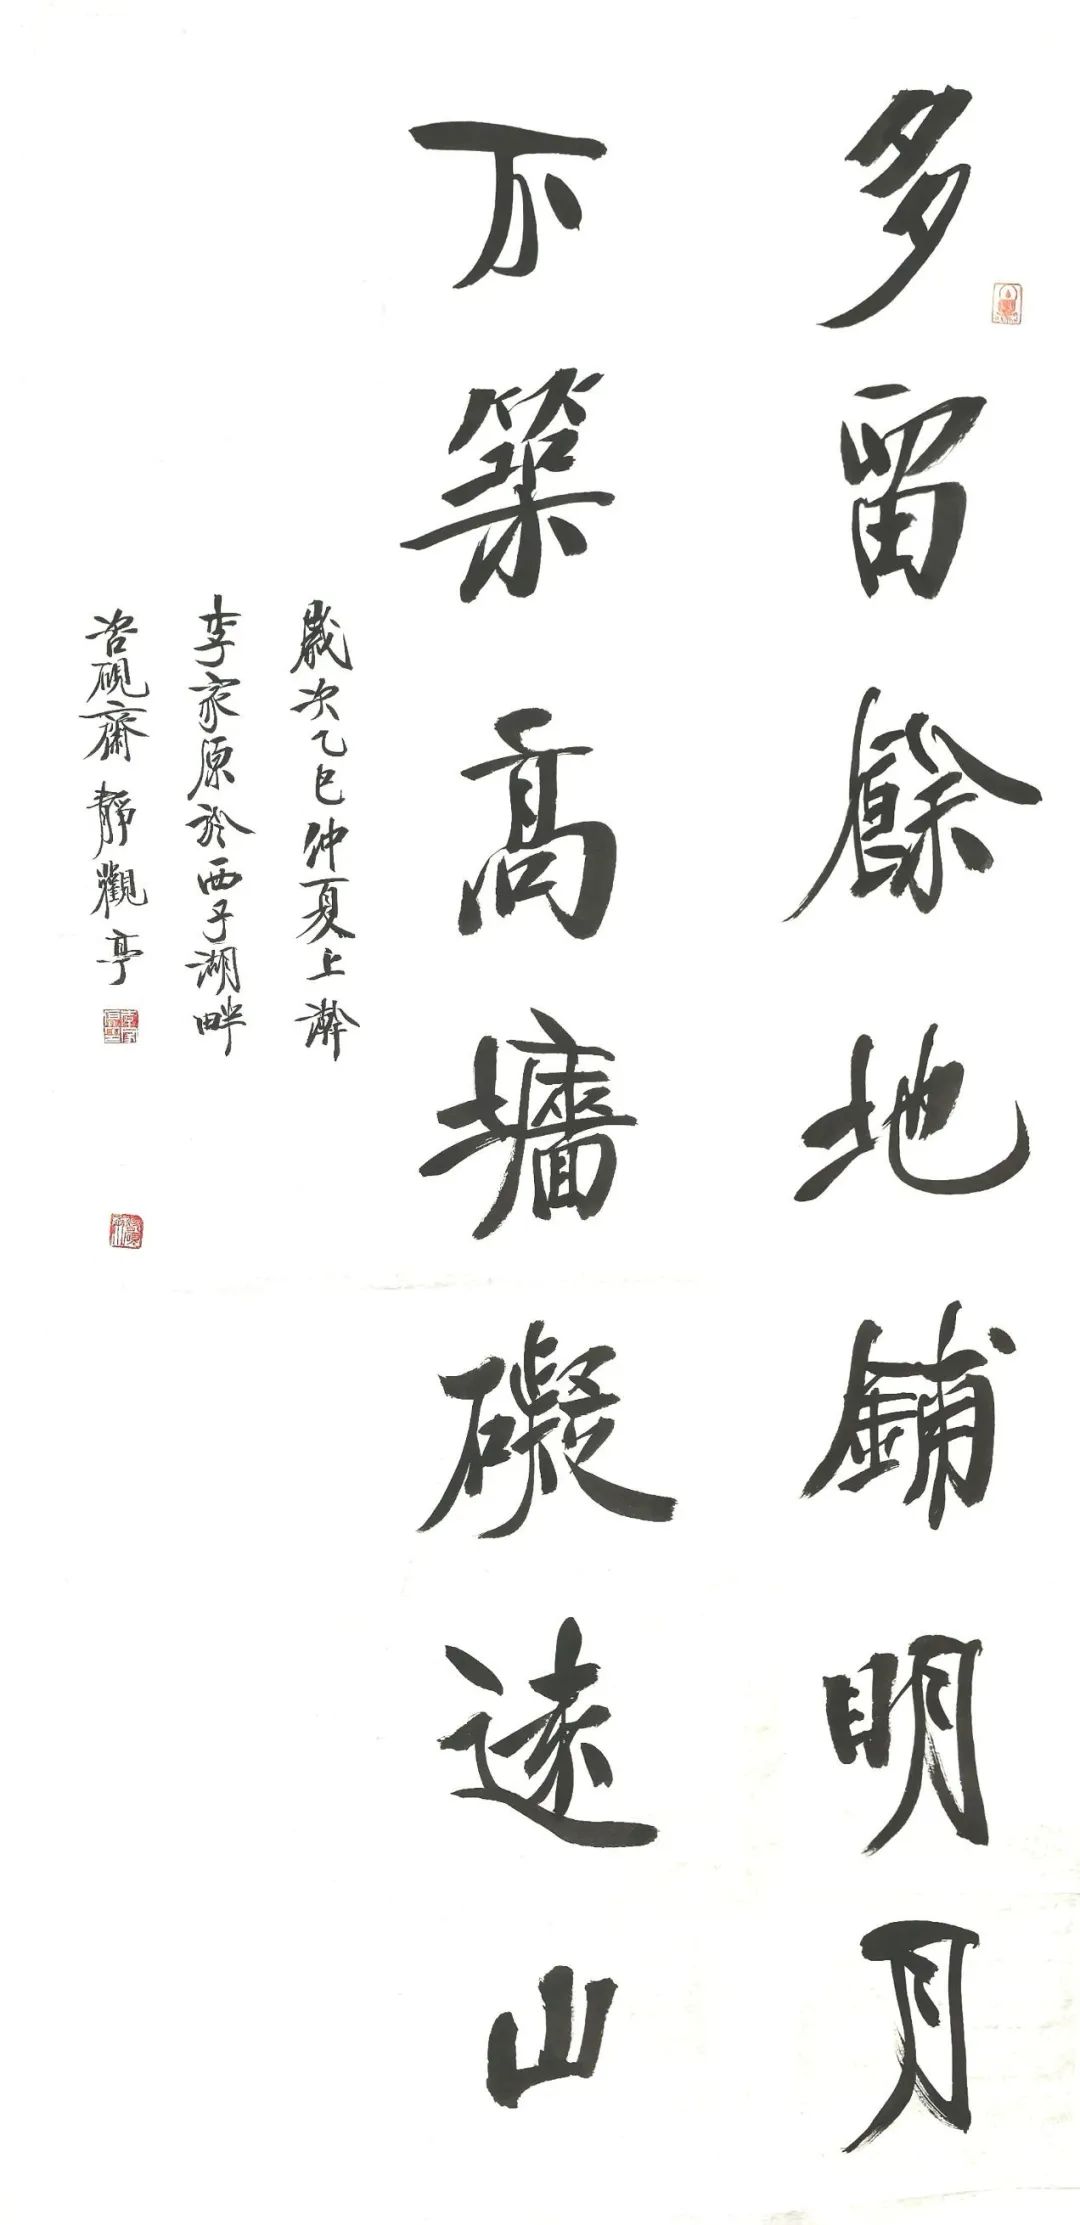 多留餘地鋪明月
不築高墻礙遠山
歲次乙巳仲夏上澣
李家原於西子湖畔
硯齋靜觀亭